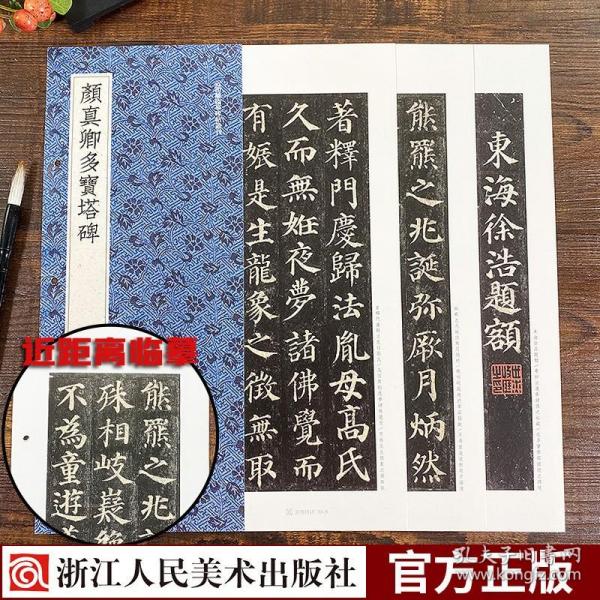 顏真卿多寶塔碑
東海徐浩題額
熊羆之兆誕弥厥月炳然
著釋門慶歸法胤母高氏
久而無姙夜夢諸佛覺而
有娠是生龍象之徵無取
近距离临摹
熊羆之兆
殊相岐嶷絕
不為童遊
浙江人民美术出版社
官方正版
孔夫子旧书网
www.kongfz.com